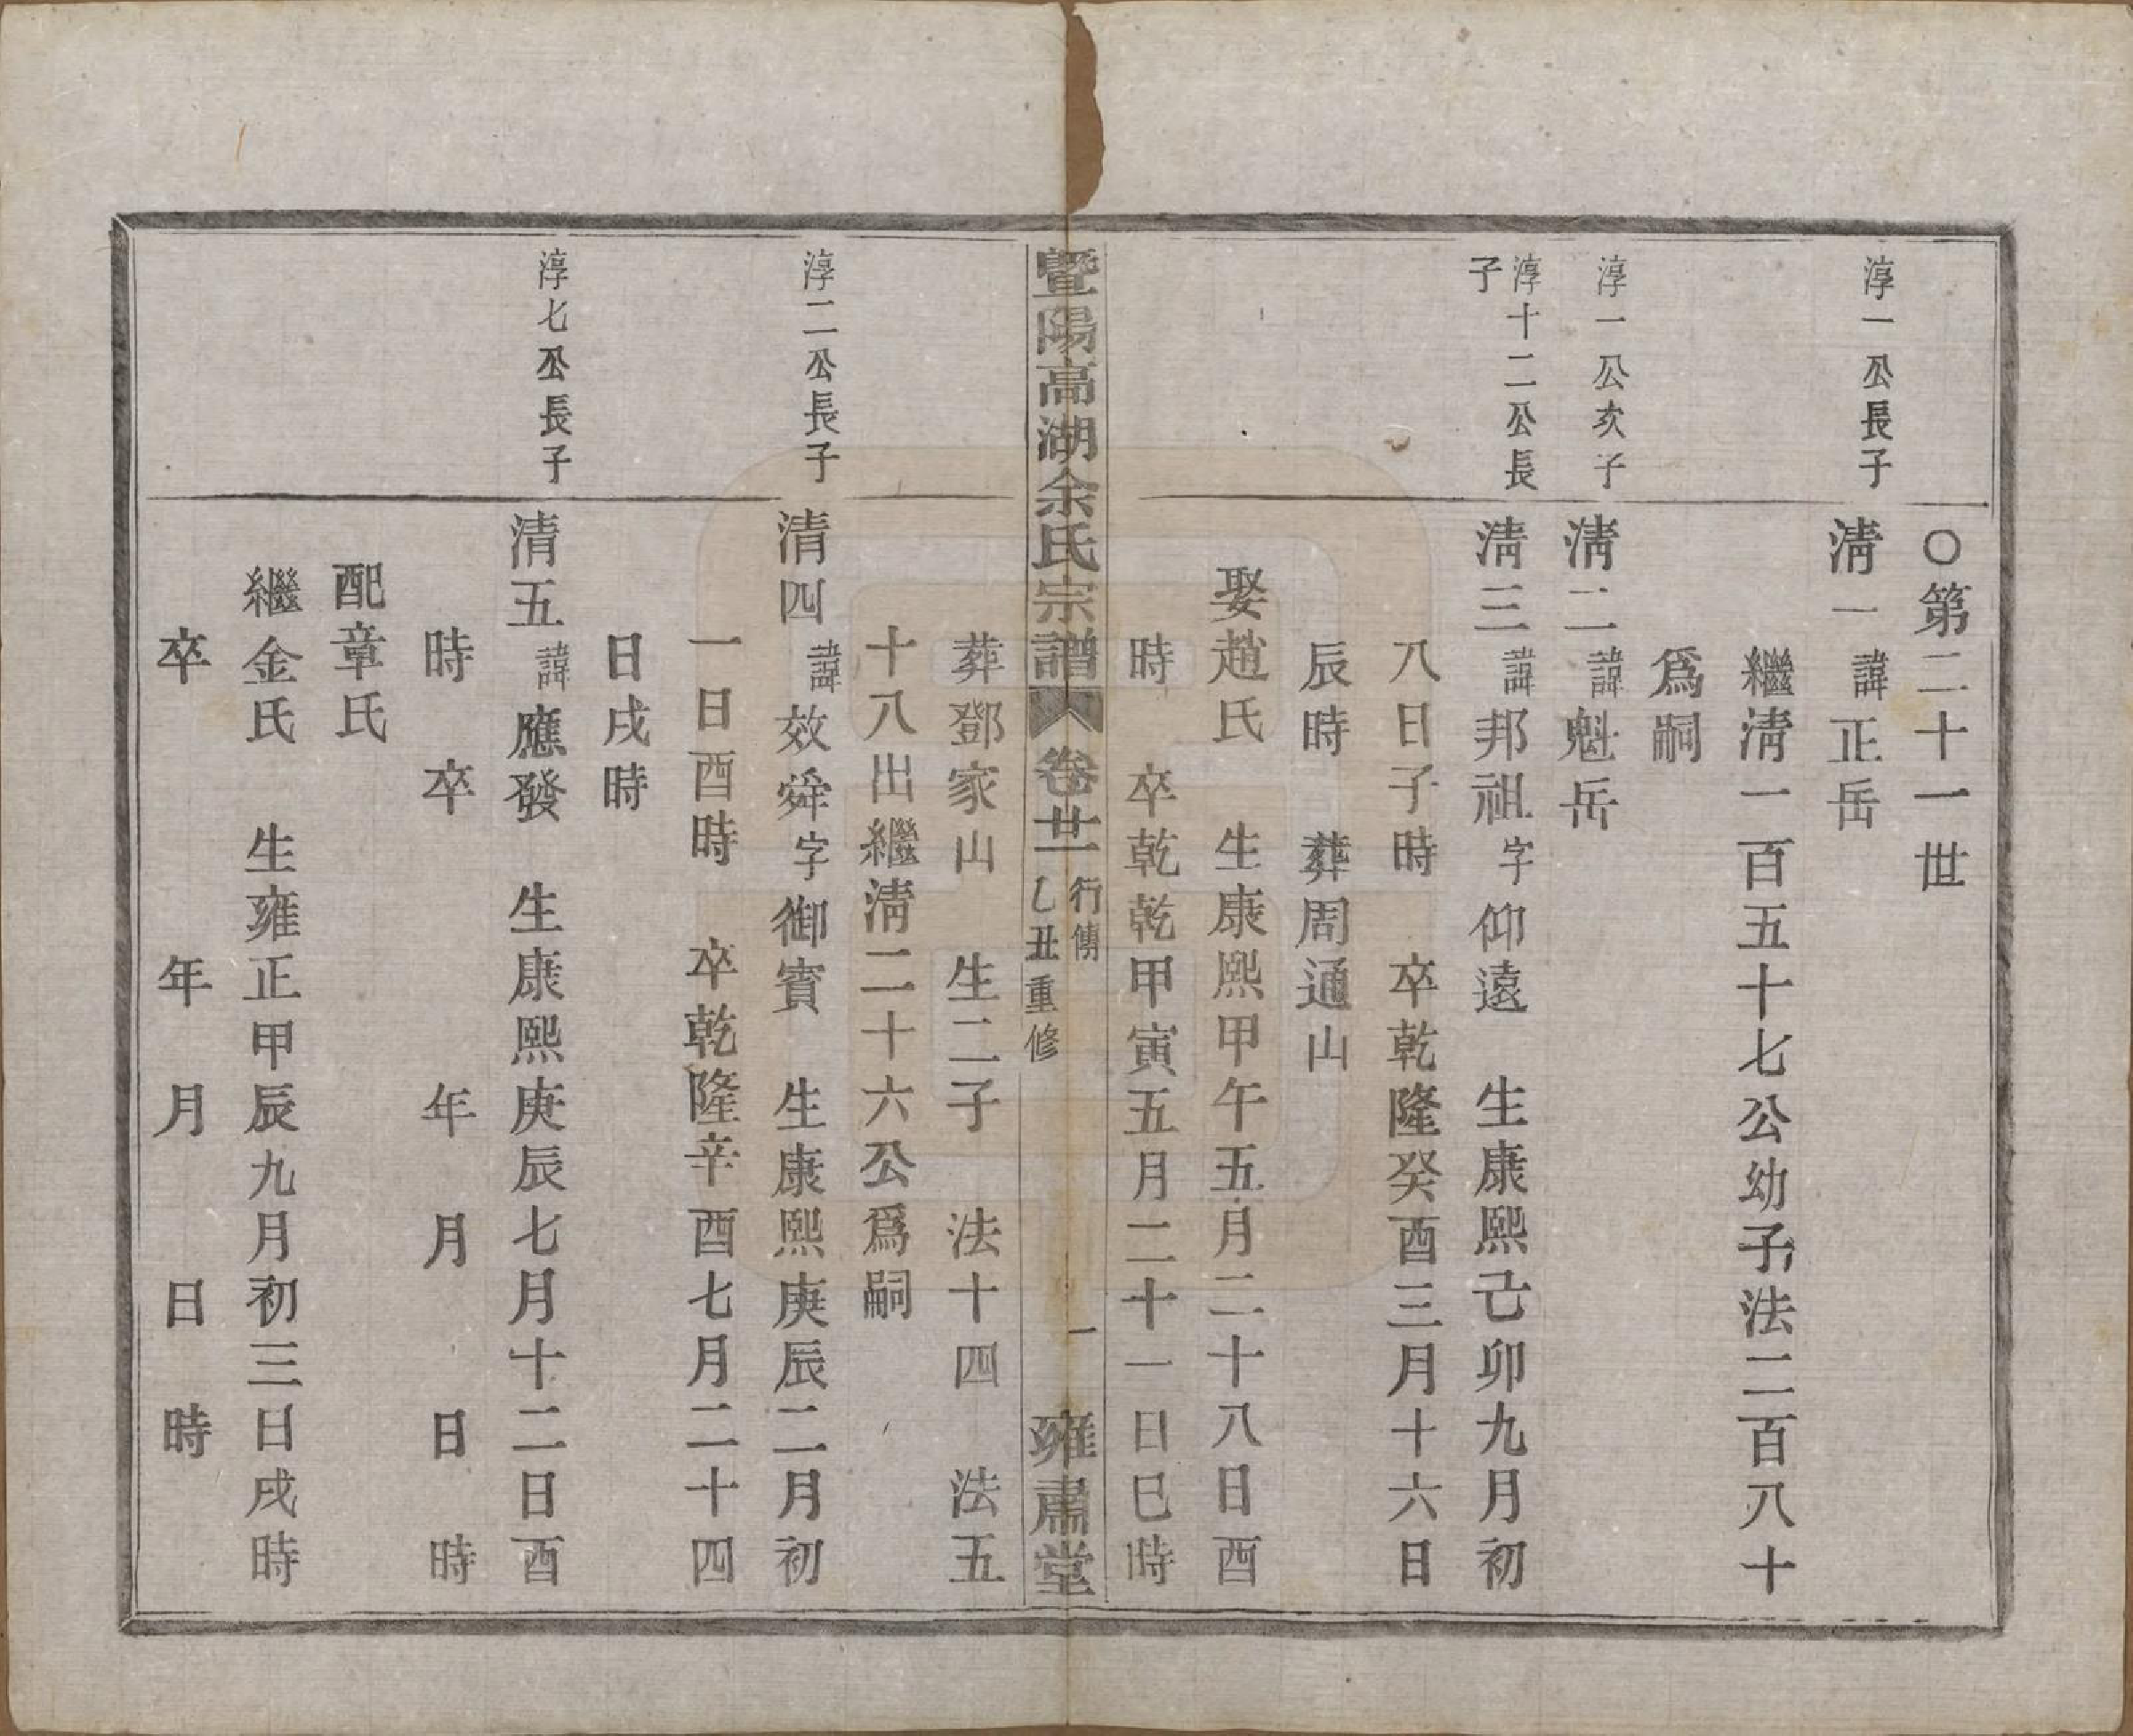 ○第二十一世
淳一公長子
清一諱正岳
繼清一百五十七公幼子法二百八十
爲嗣
淳一公次子
清二諱魁岳
淳十二公長
子
清三諱邦祖字仰遠　生康熙己卯九月初
八日子時　卒乾隆癸酉三月十六日
辰時　葬周通山
娶趙氏　生康熙甲午五月二十八日酉
時　卒乾乾甲寅五月二十一日巳時
暨陽高湖余氏宗譜　卷廿一　行傳　乙丑重修　一　雍肅堂
葬鄧家山　生二子　法十四　法五
十八出繼清二十六公爲嗣
淳二公長子
清四諱效舜字御賓　生康熙庚辰二月初
一日酉時　卒乾隆辛酉七月二十四
日戌時
淳七公長子
清五諱應發　生康熙庚辰七月十二日酉
時　卒　年　月　日　時
配章氏
繼金氏　生雍正甲辰九月初三日戌時
卒　年　月　日　時